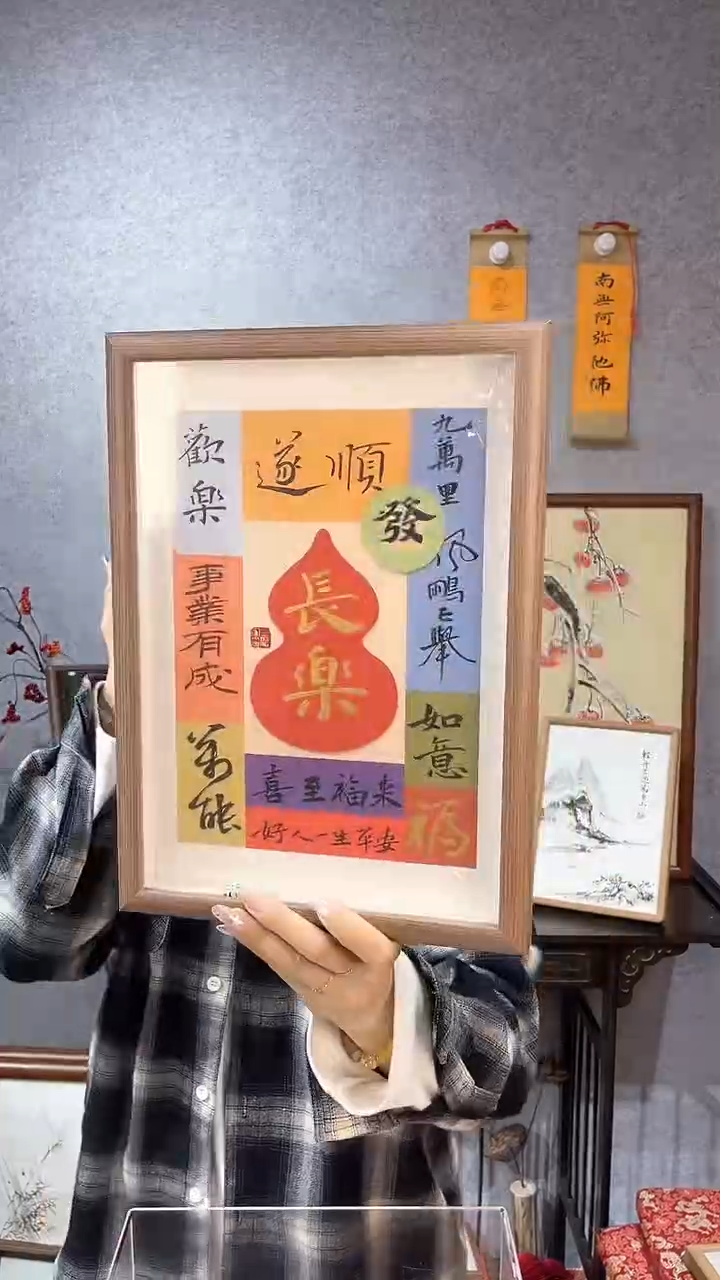 歡楽
遂順
九萬里風鵬正舉
發
長楽
事業有成
萬能
如意
喜至福来
福
好人一生平安
南無阿弥陀佛